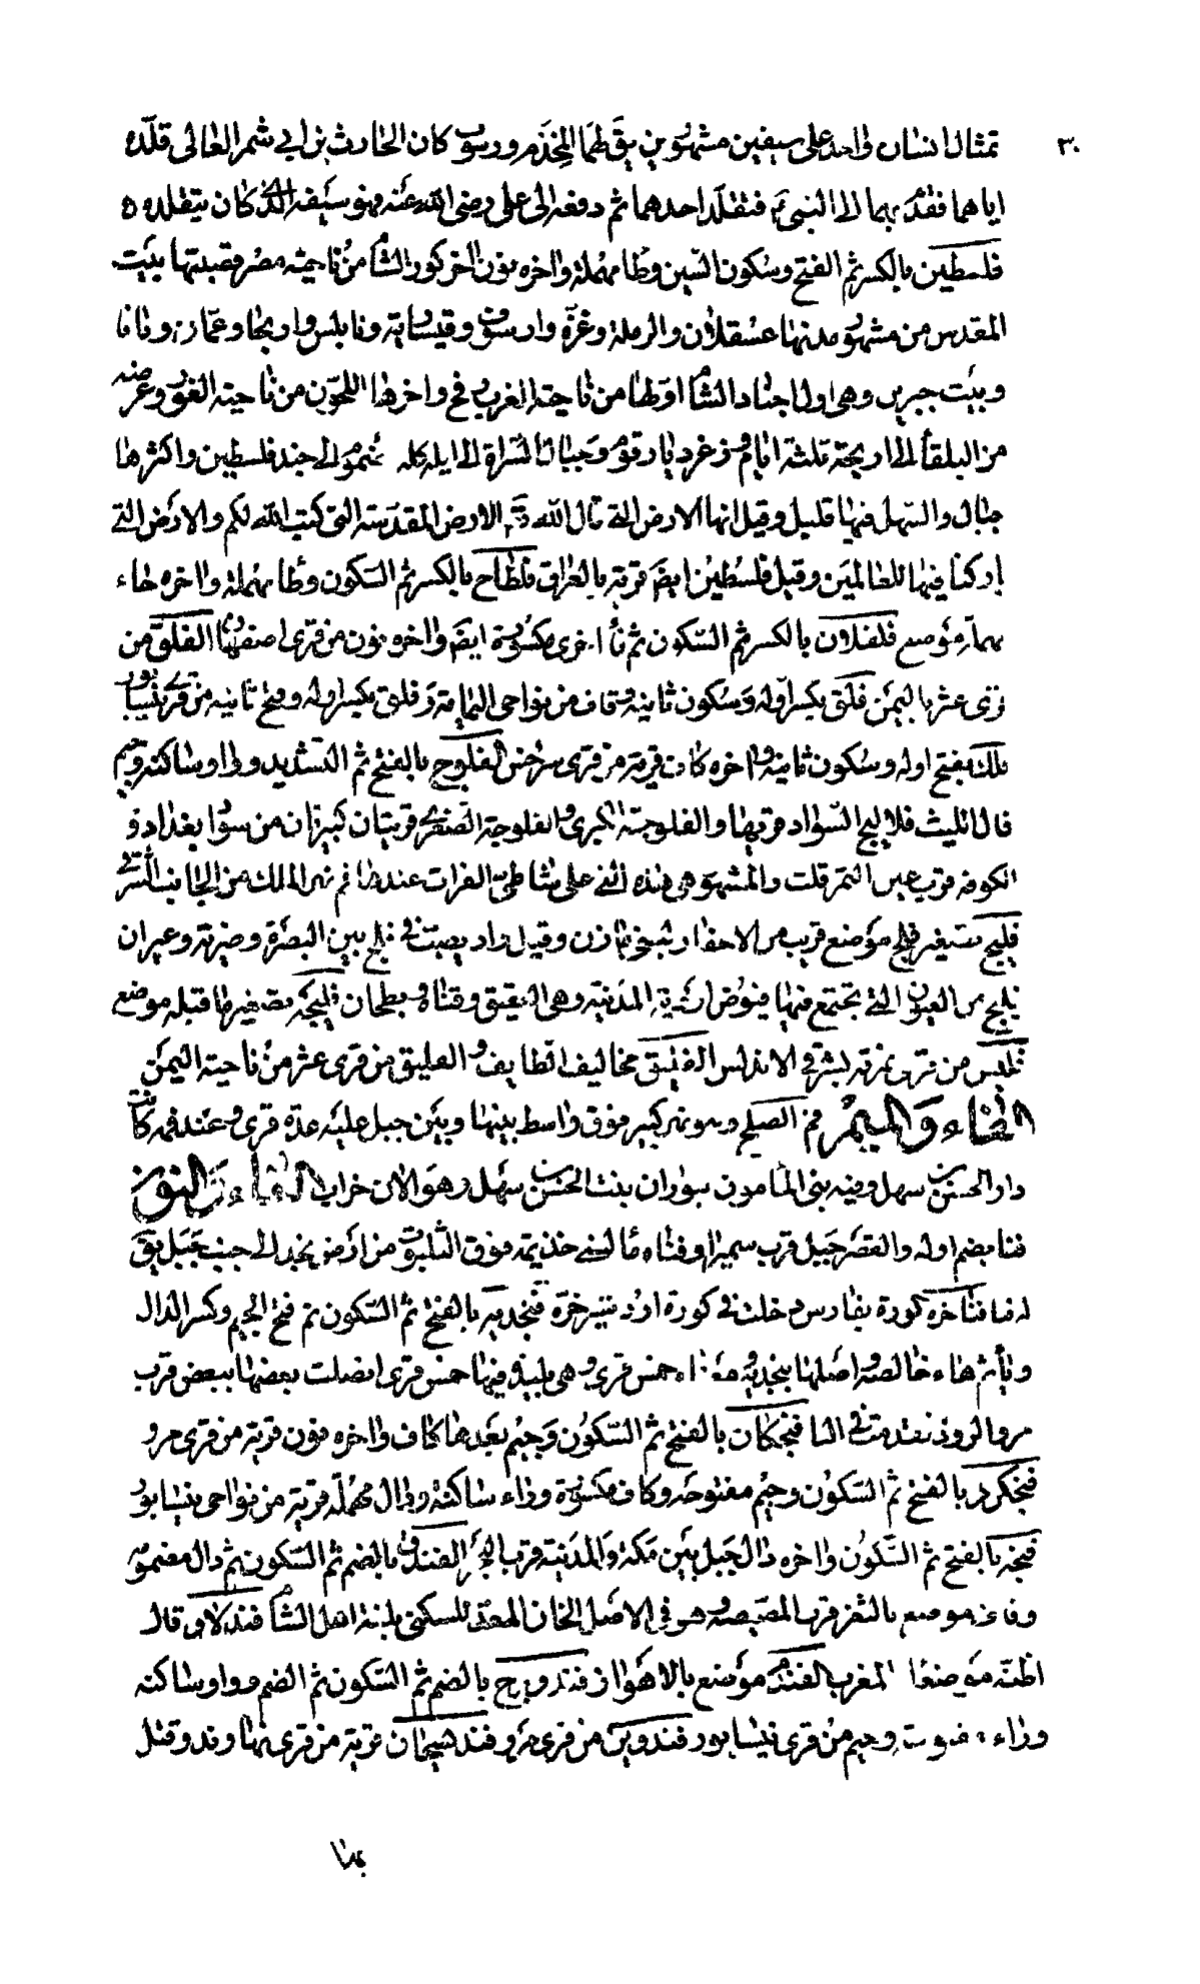 ٣٠
تمثال انسان واحد على سيفين مشهورين يقال لهما المخذم ورسوب كان الحارث بن ابي شمر الغساني قلده
اياهما فقدم بهما الى النبي ثم فتقلد احدهما ثم دفعه الى علي رضى الله عنه وهو سيفه الذي كان يتقلده
فلسطين بالكسر ثم الفتح وسكون السين وطا مهملة واخره نون اخر كور الشام من ناحية مصر قصبتها بيت
المقدس من مشهور مدنها عسقلان والرملة وغزة وارسوف وقيسارية ونابلس واريحا وعمان ويافا
وبيت جبرين وهى اول اجناد الشام اولها من ناحية الغرب رفح واخرها اللجون من ناحية الغور وعرضه
من البلقاء الى اريحة ثلثة ايام وزغر ديار قوم وجبال الشراة الى ايله كله مضموم الى جند فلسطين واكثرها
جبال والسهل فيها قليل وقيل انها الارض التى قال الله الارض المقدسة التى كتب الله لكم والارض التى
باركنا فيها للعالمين وقيل فلسطين ايضا قرية بالعراق فلطاح بالكسر ثم السكون وطا مهملة واخره حاء
مهملة موضع فلفلان بالكسر ثم السكون ثم فا اخرى مكسورة ايضا واخره نون من قرى اصفهان الفلق من
قرى عثر باليمن فلق بكسر اوله وسكون ثانيه وقاف من نواحى اليمامة وفلق بكسر اوله وفتح ثانيه من قرى نيسابور
فلك بفتح اوله وسكون ثانيه واخره كاف قرية من قرى سرخس الفلوج بالفتح ثم التشديد وواو ساكنة وجيم
قال الليث فلاليج السواد قريها والفلوجة الكبرى والفلوجة الصغرى قريتان كبيرتان من سواد بغداد و
الكوفه قرب عين التمر قلت والمشهور هى هذه التى على شاطئ الفرات عندها فم نهر الملك من الجانب الشرقى
فليج تصغير فلج موضع قريب من الاحفار لبنى مازن وقيل واد يصب فى فلج بين البصرة وضرية وعيران
فليج من العيون التى تجتمع فيها فيوض اودية المدينة وهى العقيق وقناة وبطحان فليجة تصغير ما قبله موضع
من قرى بالاندلس الفليق مخاليف الطايف والفليق من قرى عثر من ناحية اليمن
الفاء والميم فم الصلح وهو نهر كبير فوق واسط بينها وبين جبل عليه عدة قرى وعند فمه كانت
دار الحسن بن سهل وفيه بنى المامون ببوران بنت الحسن بن سهل وهو الان خراب الفاء والنون
فنا بضم اوله والقصر جبيل قرب سميرا وفناه ما لبنى جذيمة فوق الثلبوت من ارض نجد الى جنب جبل يقال
له فنا فناخره كورة بفارس دخلت فى كورة اردشير خره فنجديه بالفتح ثم السكون ثم فتح الجيم وكسر الدال
وياء ثم هاء خالصة اصلها بنجديه خمس قرى وهى بليدة فيها خمس قرى اتصلت بعضها ببعض قرب
مرو الروذ تقدمت فى البا فنجكان بالفتح ثم السكون وجيم بعدها كاف واخره نون قرية من قرى مرو
فنجكرد بالفتح ثم السكون وجيم مفتوحة وكاف مكسورة وراء ساكنة ودال مهملة قرية من نواحى نيسابور
بالفتح ثم السكون واخره دال جبل بين مكة والمدينة قرب البحر الفندق بالضم ثم السكون ثم دال مضمومة
وقاف موضع بالثغر قرب المصيصة وهو فى الاصل الخان المعد للسكنى بلغة اهل الشام فندلاو قال
اظنه موضعا بالمغرب الفندم موضع بالاهواز فندورج بالضم ثم السكون ثم الضم وواو ساكنة
وراء مفتوحة وجيم من قرى نيسابور فندوين من قرى مرو فندهيجان قرية من قرى نهاوند وقتل
بها